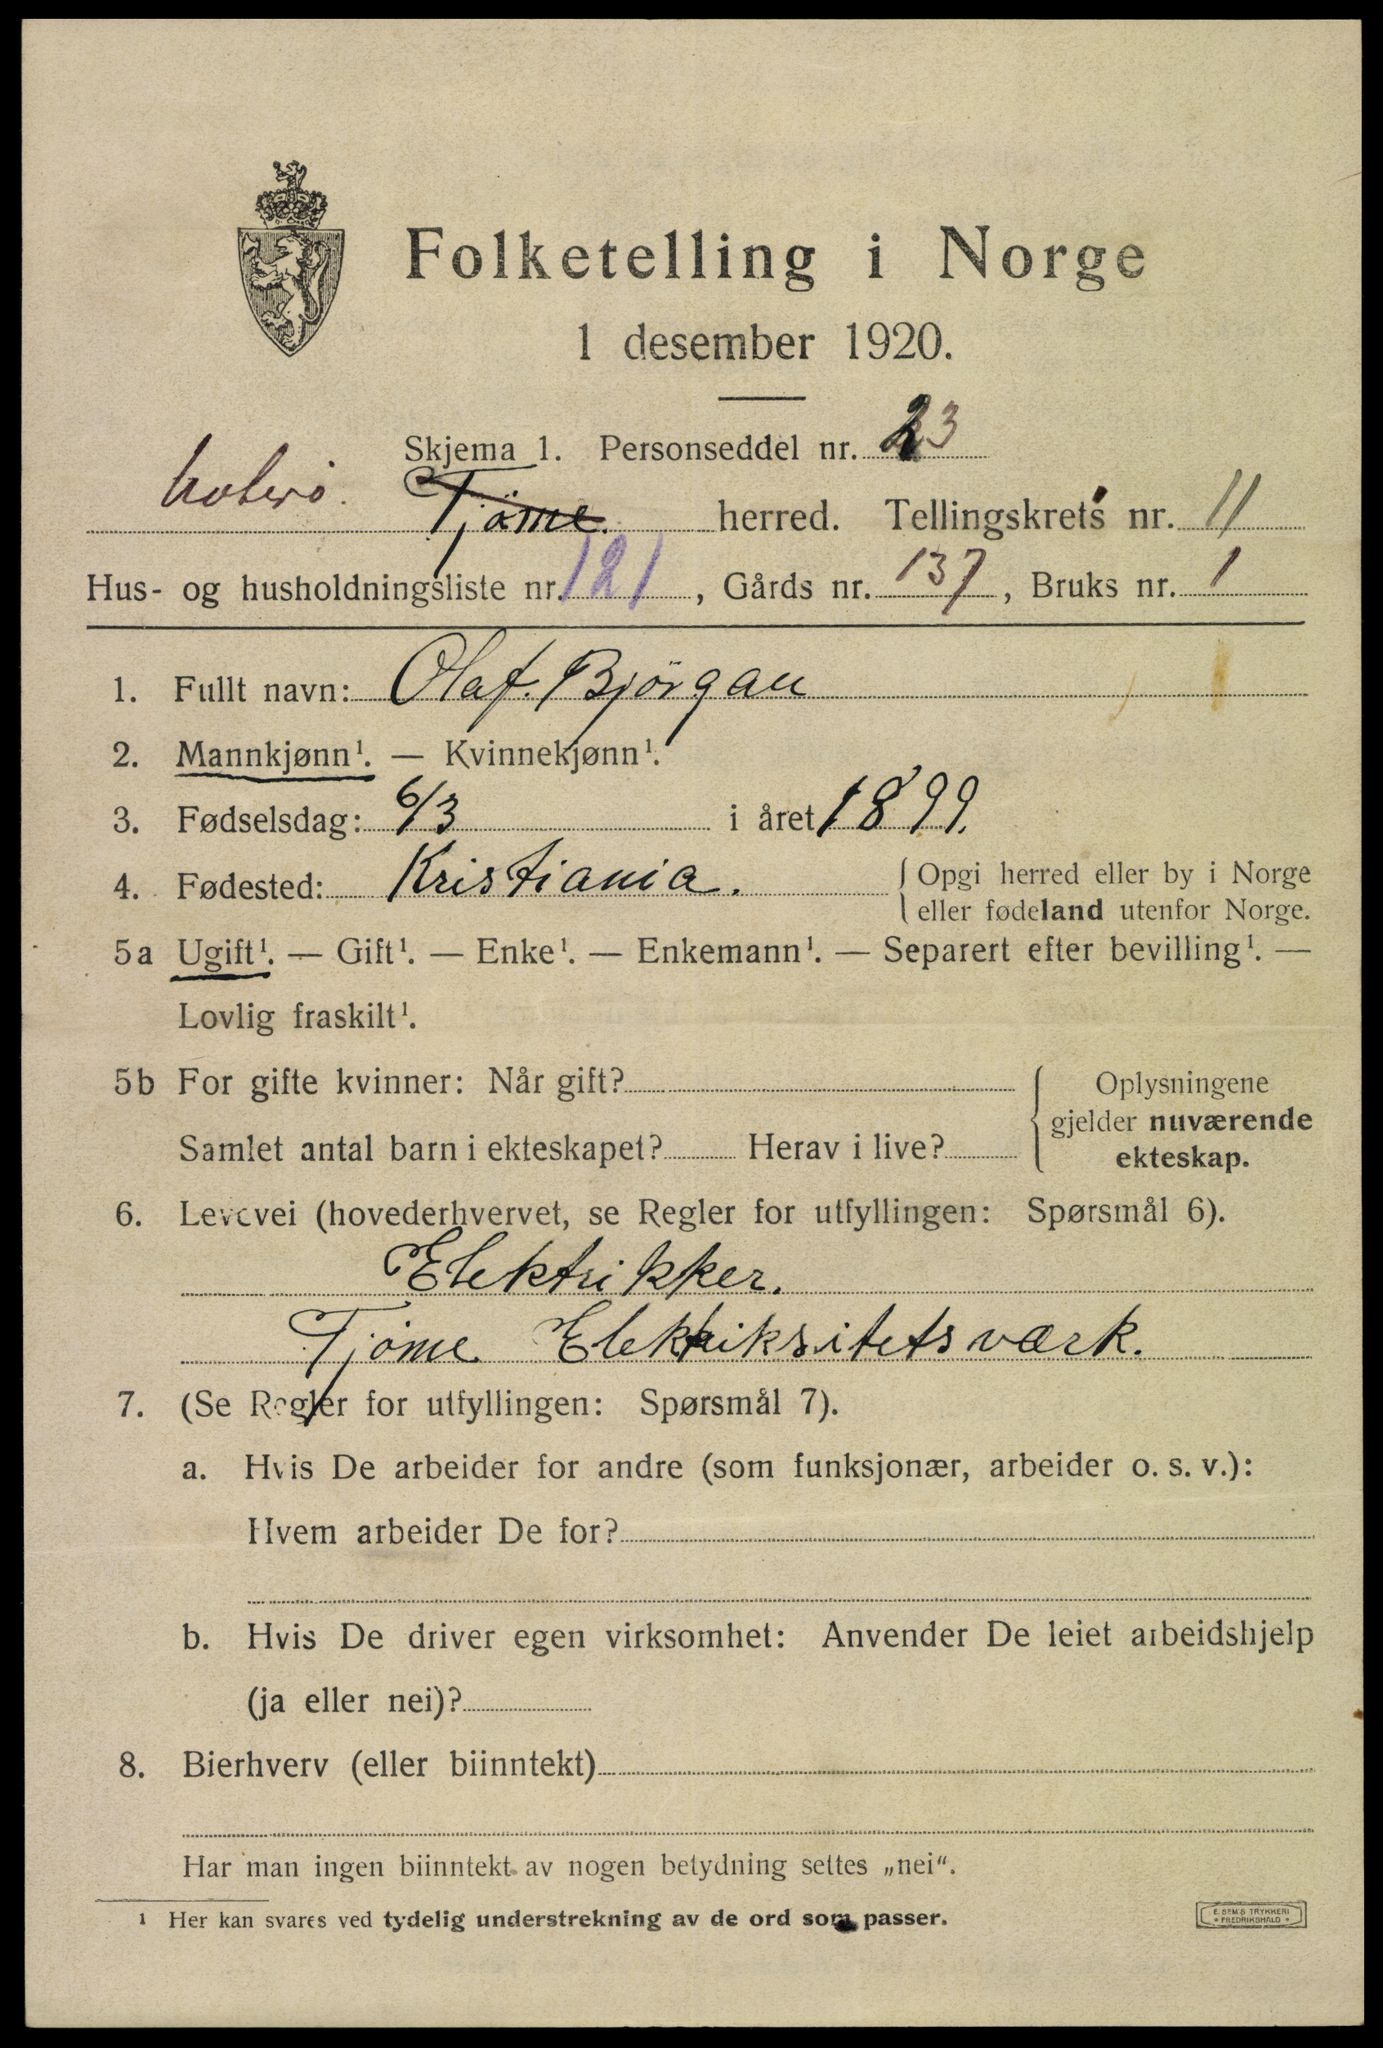 Folketelling i Norge
1 desember 1920.
Skjema 1. Personseddel nr. 23
Nøterø. Tjøme. herred. Tellingskrets nr. 11
Hus- og husholdningsliste nr. 121, Gårds nr. 137, Bruks nr. 1
1. Fullt navn: Olaf. Bjørgan
2. Mannkjønn¹. — Kvinnekjønn¹.
3. Fødselsdag: 6/3 i året 1899.
4. Fødested: Kristiania. { Opgi herred eller by i Norge
eller fødeland utenfor Norge.
5a Ugift¹. — Gift¹. — Enke¹. — Enkemann¹. — Separert efter bevilling¹. —
Lovlig fraskilt¹.
5b For gifte kvinner: Når gift? { Oplysningene
gjelder nuværende
Samlet antal barn i ekteskapet? Herav i live? ekteskap.
6. Levevei (hovederhvervet, se Regler for utfyllingen: Spørsmål 6).
Elektrikker.
Tjøme Elektriksitetsværk.
7. (Se Regler for utfyllingen: Spørsmål 7).
a. Hvis De arbeider for andre (som funksjonær, arbeider o. s. v.):
Hvem arbeider De for?
b. Hvis De driver egen virksomhet: Anvender De leiet arbeidshjelp
(ja eller nei)?
8. Bierhverv (eller biinntekt)
Har man ingen biinntekt av nogen betydning settes „nei“.
¹ Her kan svares ved tydelig understrekning av de ord som passer.
E. SEM'S TRYKKERI
FREDRIKSHALD